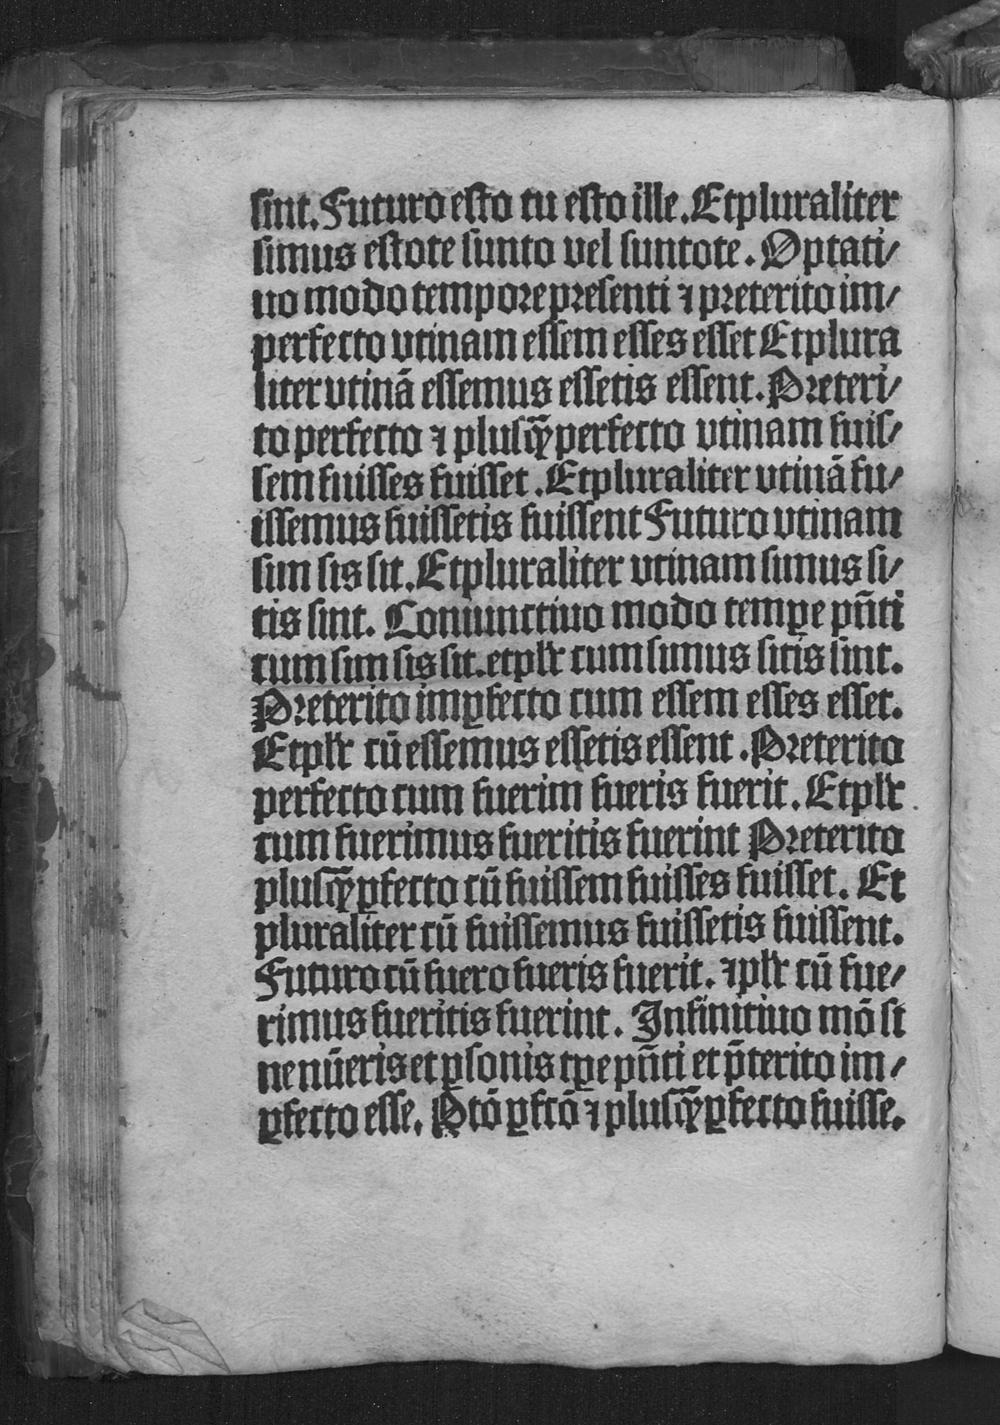 sint. Futuro esto tu esto ille. Et pluraliter
simus estote sunto vel suntote. Optati/
uo modo tempore presenti ⁊ preterito im/
perfecto vtinam essem esses esset Et plura
liter vtinā essemus essetis essent. Preteri/
to perfecto ⁊ plusꝙ̄perfecto vtinam fuis/
sem fuisses fuisset. Et pluraliter vtinā fu/
issemus fuissetis fuissent Futuro vtinam
sim sis sit. Et pluraliter vtinam simus si/
tis sint. Coniunctiuo modo tempꝑe pn̄ti
cum sim sis sit. et pl̄r cum simus sitis sint.
Preterito imꝑfecto cum essem esses esset.
Et pl̄r cū essemus essetis essent. Preterito
perfecto cum fuerim fueris fuerit. Et pl̄r
cum fuerimus fueritis fuerint Preterito
plusꝙ̄ꝑfecto cū fuissem fuisses fuisset. Et
pluraliter cū fuissemus fuissetis fuissent.
Futuro cū fuero fueris fuerit. ⁊ pl̄r cū fue/
rimus fueritis fuerint. Infinitiuo mō si
ne nūeris et ꝑsonis tꝑe pn̄ti et p̄terito im/
ꝑfecto esse. Ptō ꝑfcō ⁊ plusꝙ̄ꝑfecto fuisse.